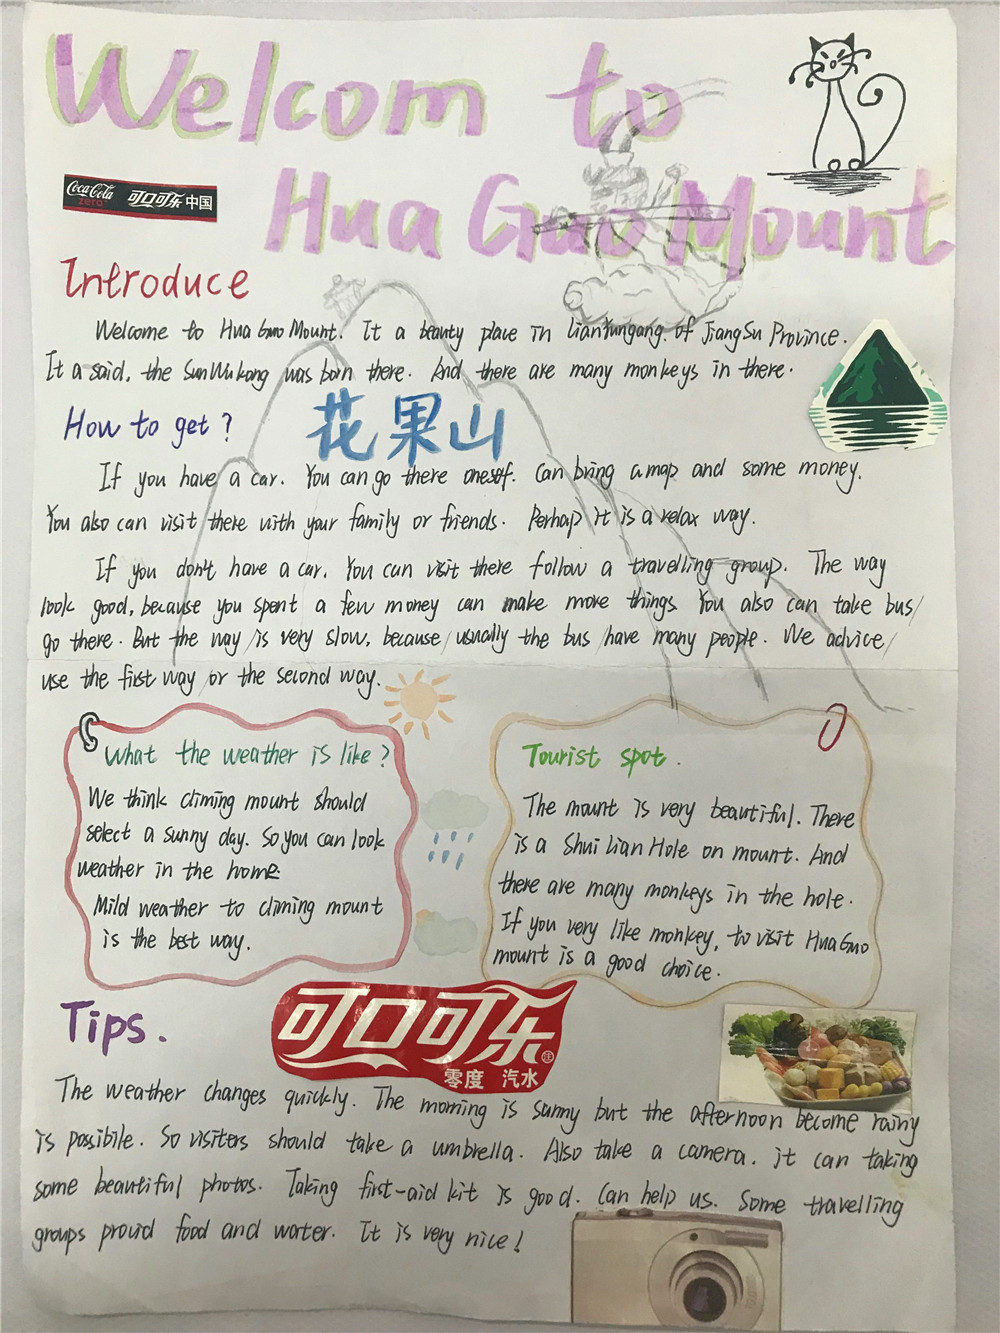 Welcom to
Coca-Cola zero 可口可乐 中国
Hua Guo Mount
Introduce
Welcome to Hua Guo Mount. It a beauty place in Lianyungang. of JiangSu Province.
It a said, the Sun Wu kong was born there. And there are many monkeys in there.
How to get?
花果山
If you have a car. You can go there oneself. Can bring a map and some money.
You also can visit there with your family or friends. Perhap it is a relax way.
If you don't have a car. You can visit there follow a travelling group. The way
look good, because you spent a few money can make more things. You also can take bus
go there. But the way is very slow, because usually the bus have many people. We advice
use the first way or the second way.
What the weather is like?
We think climing mount should
select a sunny day. So you can look
weather in the home.
Mild weather to climing mount
is the best way.
Tourist spot.
The mount is very beautiful. There
is a Shui Lian Hole on mount. And
there are many monkeys in the hole.
If you very like monkey, to visit Hua Guo
mount is a good choice.
Tips.
可口可乐
零度 汽水
The weather changes quickly. The morning is sunny but the afternoon become rainy
is possibile. So visiters should take a umbrella. Also take a camera. it can taking
some beautiful photos. Taking first-aid kit is good. Can help us. Some travelling
groups provid food and water. It is very nice!